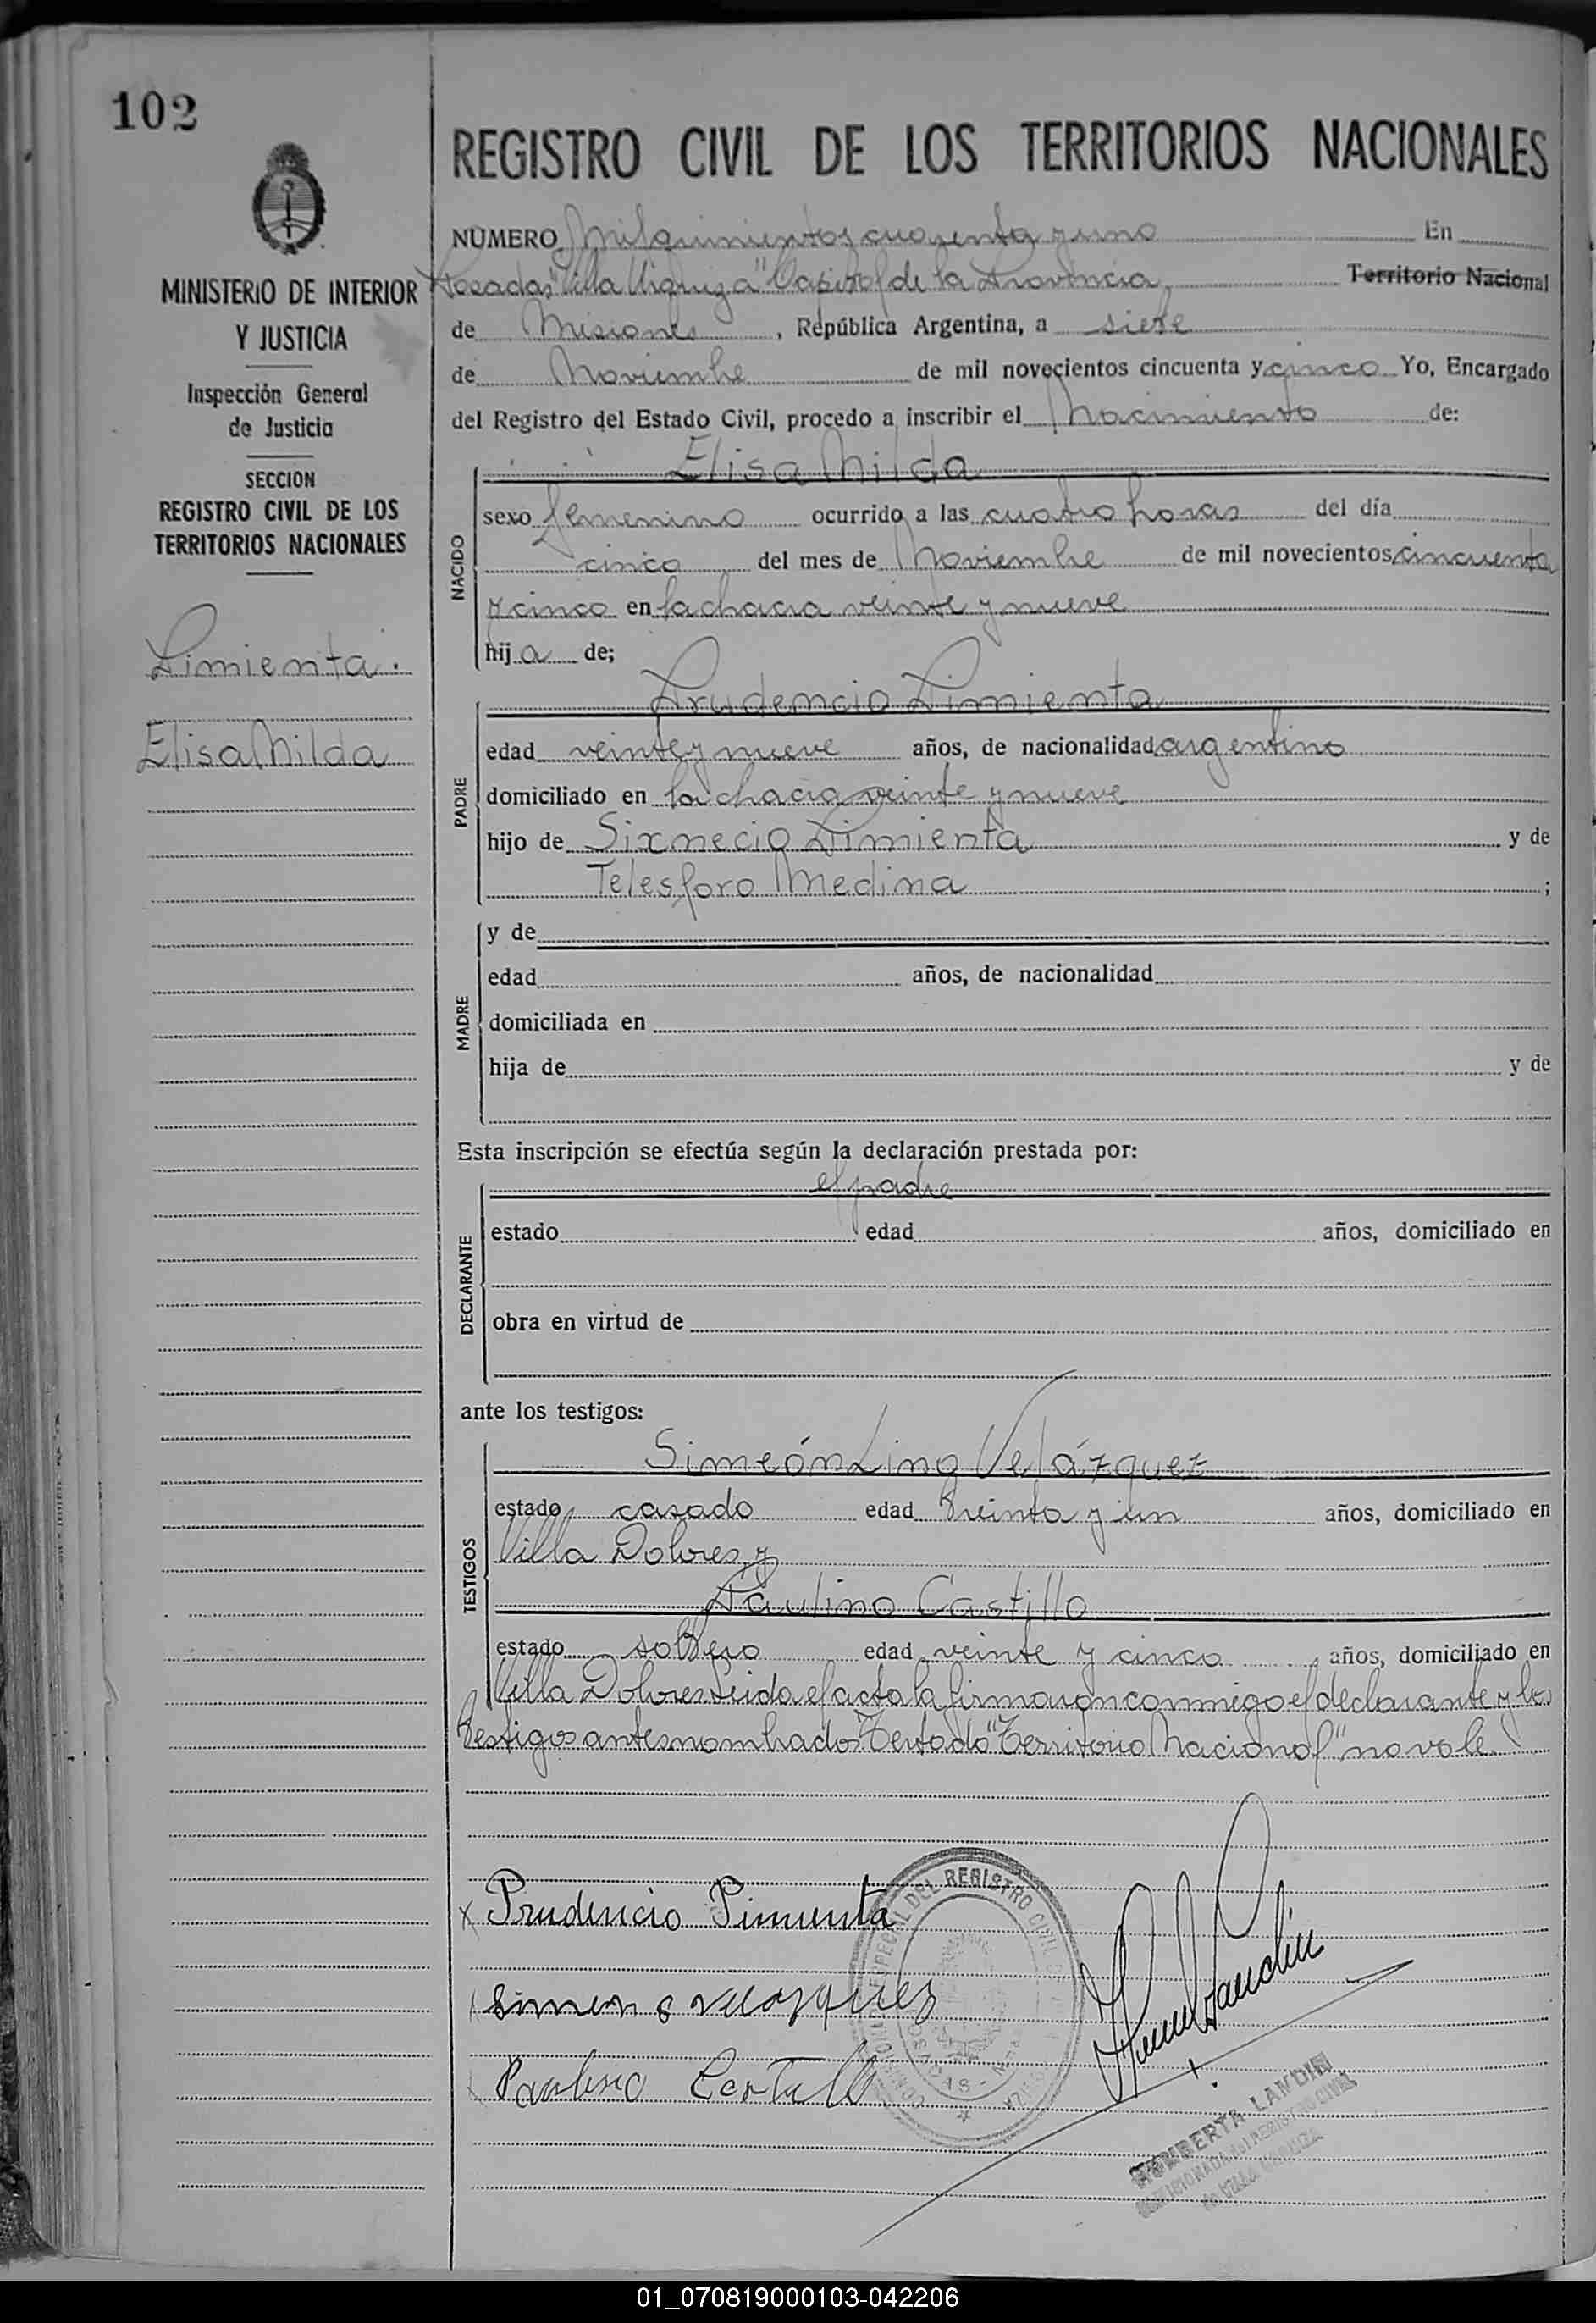 102
REGISTRO CIVIL DE LOS TERRITORIOS NACIONALES
MINISTERIO DE INTERIOR
Y JUSTICIA
Inspección General
de Justicia
SECCION
REGISTRO CIVIL DE LOS
TERRITORIOS NACIONALES
Pimienta.
Elisa Nilda
NUMERO Mil quinientos cuarenta y uno En
Posadas "Villa Urquiza" Capital de la Provincia Territorio Nacional
de Misiones, República Argentina, a siete
de Noviembre de mil novecientos cincuenta y cinco Yo, Encargado
del Registro del Estado Civil, procedo a inscribir el Nacimiento de:
Elisa Nilda
NACIDO
sexo femenino ocurrido a las cuatro horas del día
cinco del mes de Noviembre de mil novecientos cincuenta
y cinco en la chacra veinte y nueve
hija de;
Prudencio Pimienta
PADRE
edad veinte y nueve años, de nacionalidad argentino
domiciliado en la chacra veinte y nueve
hijo de Pimienta y de
Telesfora Medina ;
MADRE
y de
edad años, de nacionalidad
domiciliada en
hija de y de
Esta inscripción se efectúa según la declaración prestada por:
el padre
DECLARANTE
estado edad años, domiciliado en
obra en virtud de
ante los testigos:
Simeón Lino Velázquez
TESTIGOS
estado casado edad treinta y un años, domiciliado en
Villa Dolores y
Paulino Castillo
estado soltero edad veinte y cinco años, domiciliado en
Villa Dolores Leida el acta la firmaron conmigo el declarante y los
testigos antes nombrados Testado "Territorio Nacional" no vale.
x Prudencio Pimienta
Paulino Castillo
DEL REGISTRO CIVIL
LANDINI